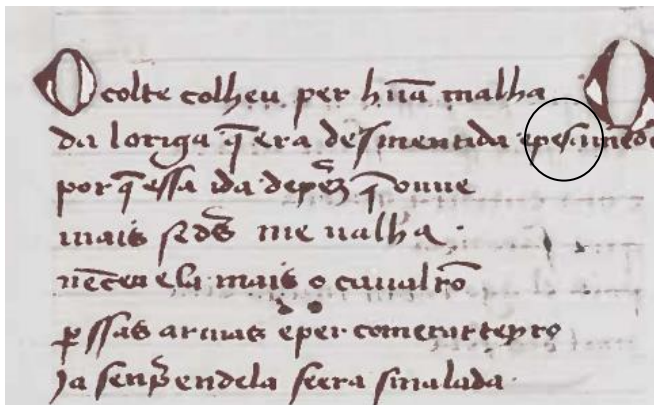 O colbe colheu per hũa malha
da loriga q̃ era desmentida
por q̃ essa ida de q̃ ouue
mais se d̃s me ualha
uẽceu ela mais o caualr̃o
ꝑ ssas armas e per com
ja senp̃ endela seera sinalada